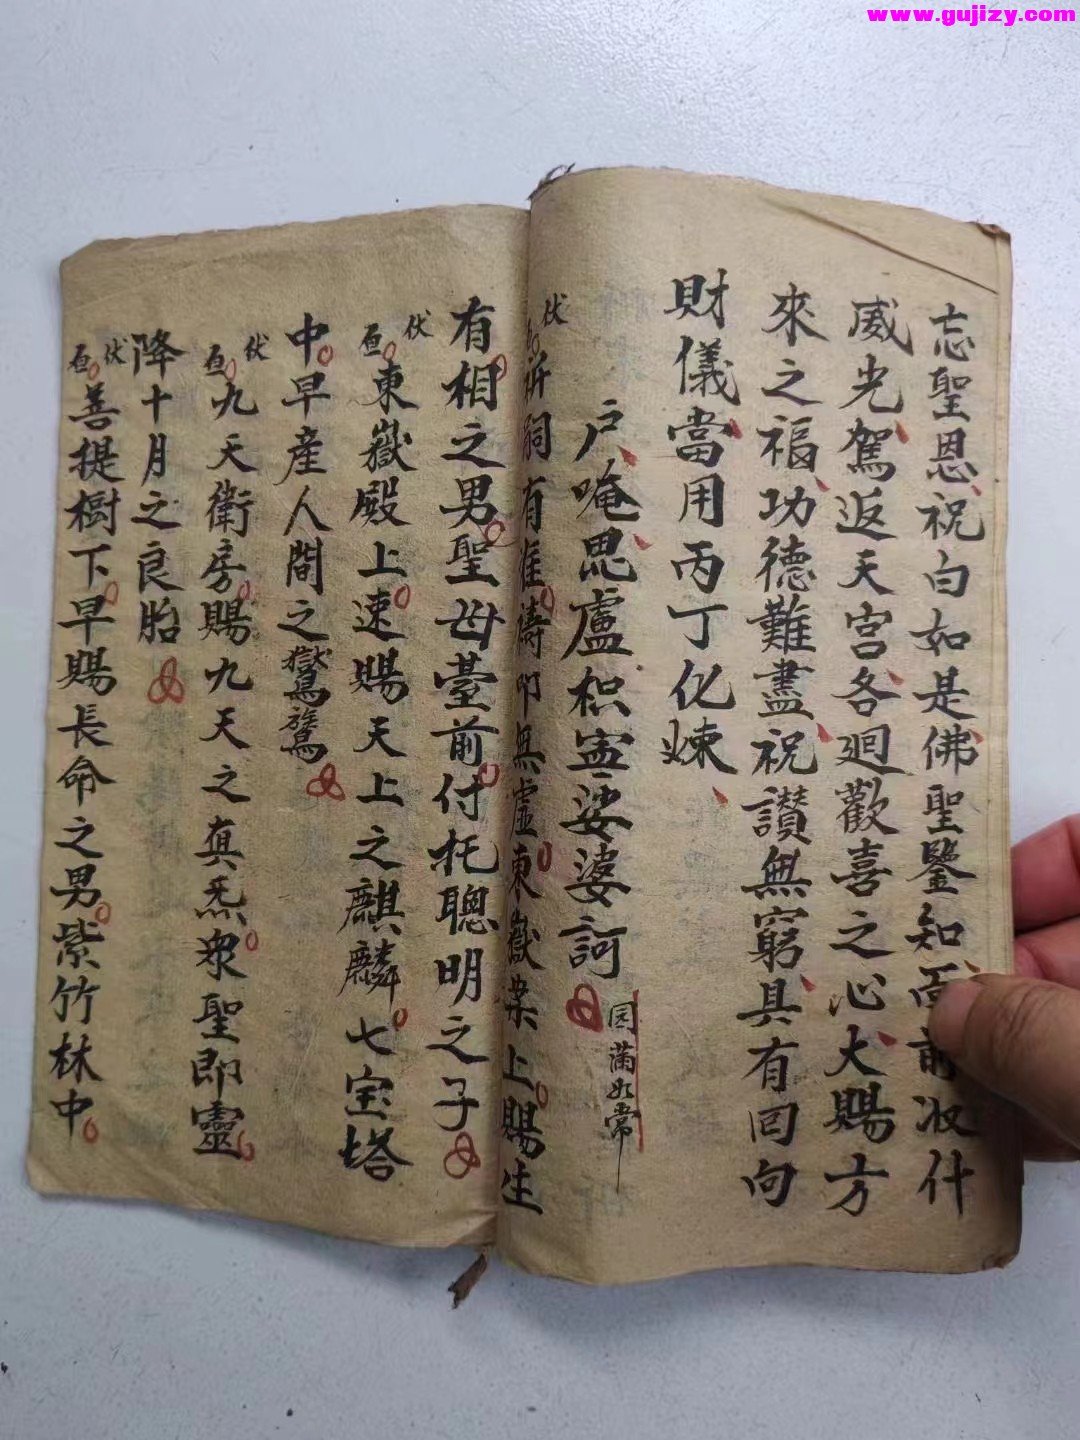 www.gujizy.com
忘聖恩祝白如是佛聖鑒知面前收什
威光駕返天宮各廻歡喜之心大賜方
來之福功德難盡祝讃無窮具有囘向
財儀當用丙丁化煉
戶唵思盧枳寍娑婆訶
园蒲如常
伏
嗣有准禱叩無虛東嶽案上賜生
有相之男聖毌臺前付托聰明之子
伏
東嶽殿上速賜天上之麒麟七宝塔
中早產人間之鸑鷟
伏
九天衛房賜九天之真炁衆聖即靈
降十月之良胎
伏
菩提樹下早賜長命之男紫竹林中